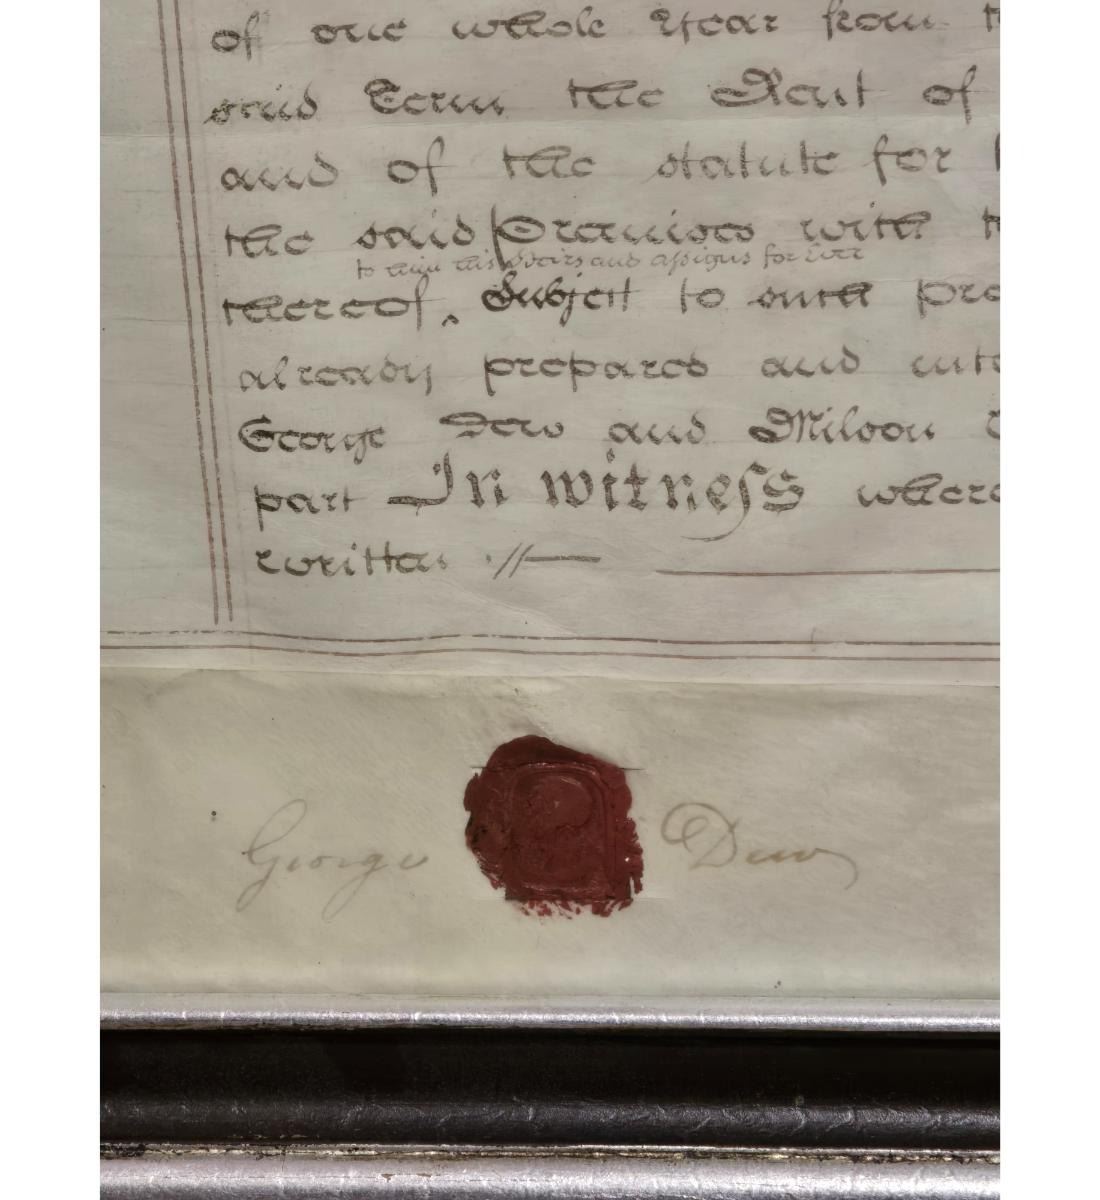 of one whole Year from
said Term the Rent of
and of the statute for
the said Premises with
to him his Heirs and assigns for Ever
thereof ‸ Subject to such pro
already prepared and inte
George Dew and Milson
part In witness where
written ·//—
George Dew